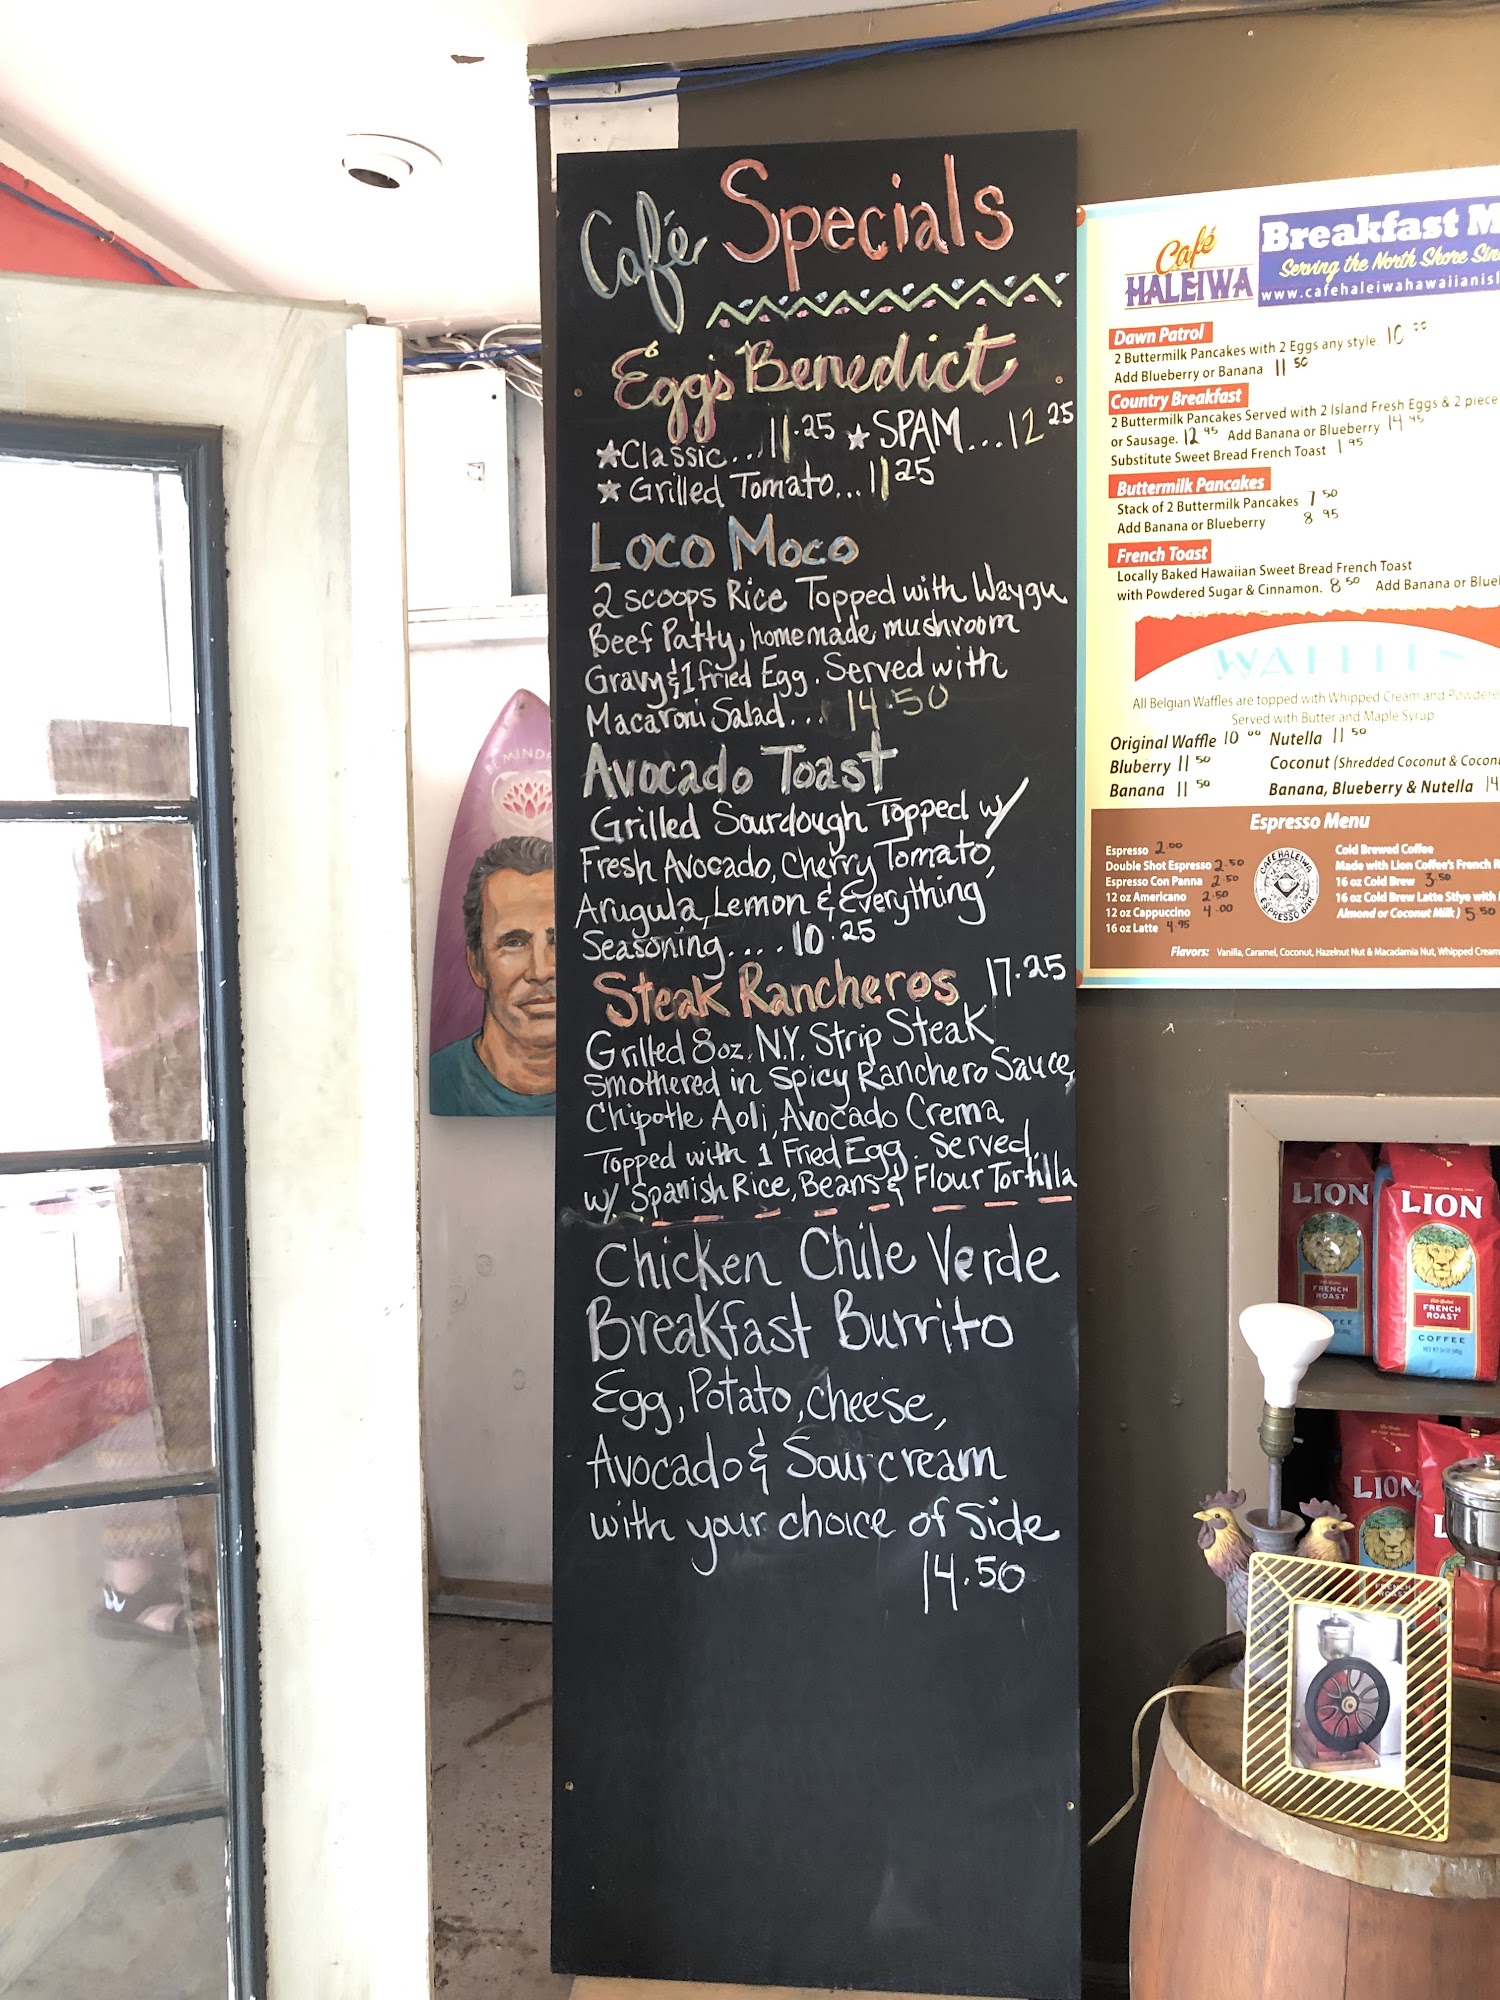 Café Specials
Eggs Benedict
Classic... 11.25 SPAM... 12.25
Grilled Tomato... 11.25
Loco Moco
2 scoops Rice Topped with Waygu
Beef Patty, homemade mushroom
Gravy & 1 fried Egg. Served with
Macaroni Salad... 14.50
Avocado Toast
Grilled Sourdough Topped w/
Fresh Avocado, Cherry Tomato,
Arugula, Lemon & Everything
Seasoning.... 10.25
Steak Rancheros 17.25
Grilled 8oz. N.Y. Strip Steak
Smothered in Spicy Ranchero Sauce,
Chipotle Aoli, Avocado Crema
Topped with 1 Fried Egg. Served
w/ Spanish Rice, Beans & Flour Tortilla
Chicken Chile Verde
Breakfast Burrito
Egg, Potato, cheese,
Avocado & Sour cream
with your choice of Side
14.50
Café HALEIWA
Breakfast M
Serving the North Shore Sin
www.cafehaleiwahawaiianisl
Dawn Patrol
2 Buttermilk Pancakes with 2 Eggs any style. 10 00
Add Blueberry or Banana 11 50
Country Breakfast
2 Buttermilk Pancakes Served with 2 Island Fresh Eggs & 2 piece
or Sausage. 12 95 Add Banana or Blueberry 14 45
Substitute Sweet Bread French Toast 1 95
Buttermilk Pancakes
Stack of 2 Buttermilk Pancakes 7 50
Add Banana or Blueberry 8 95
French Toast
Locally Baked Hawaiian Sweet Bread French Toast
with Powdered Sugar & Cinnamon. 8 50 Add Banana or Blue
WAFFLES
All Belgian Waffles are topped with Whipped Cream and Powdere
Served with Butter and Maple Syrup
Original Waffle 10 00 Nutella 11 50
Bluberry 11 50 Coconut (Shredded Coconut & Cocon
Banana 11 50 Banana, Blueberry & Nutella 14
Espresso Menu
Espresso 2.00
Double Shot Espresso 2.50
Espresso Con Panna 2.50
12 oz Americano 2.50
12 oz Cappuccino 4.00
16 oz Latte 4.95
CAFE HALEIWA
ESPRESSO BAR
Cold Brewed Coffee
Made with Lion Coffee's French R
16 oz Cold Brew 3.50
16 oz Cold Brew Latte Stlye with
Almond or Coconut Milk) 5 50
Flavors: Vanilla, Caramel, Coconut, Hazelnut Nut & Macadamia Nut, Whipped Cream
LION
FRENCH ROAST
LION
FRENCH ROAST
COFFEE
LION